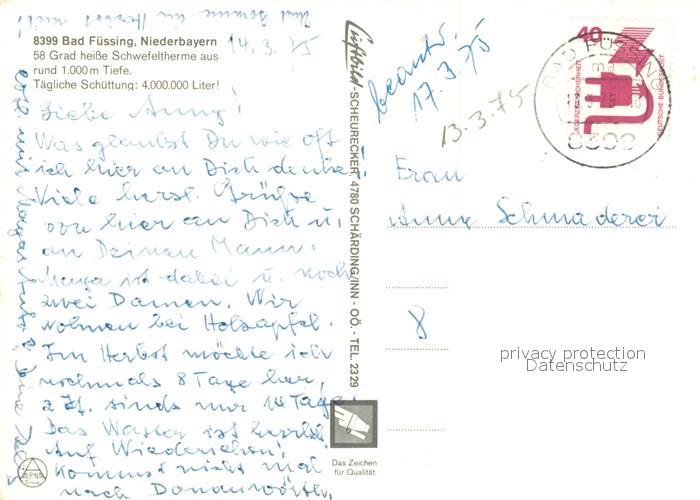 8399 Bad Füssing, Niederbayern
58 Grad heiße Schwefeltherme aus
rund 1.000 m Tiefe.
Tägliche Schüttung: 4,000.000 Liter!
14.3.75
Liebe Anny!
Was glaubst Du wie oft
ich hier an Dich denke!
Viele herzl. Grüße
von hier an Dich u.
an Deinen Mann.
ist dabei u. noch
zwei Damen. Wir
wohnen bei Holzapfel.
Im Herbst möchte ich
nochmals 8 Tage her,
z. Zt. sinds nur 14 Tage!
Das Wasser ist herrl.
Auf Wiedersehen!
Kommst nicht mal
nach Donauwörth,
Luftbild-SCHEURECKER, 4780 SCHÄRDING/INN - OÖ. - TEL. 23 29
Das Zeichen
für Qualität
ALPINA
beantw.
17.3.75
13.3.75
40
JEDERZEIT SICHERHEIT
DEUTSCHE BUNDESPOST
BAD FÜSSING
8399
Frau
Anny Schmaderer
8
privacy protection
Datenschutz